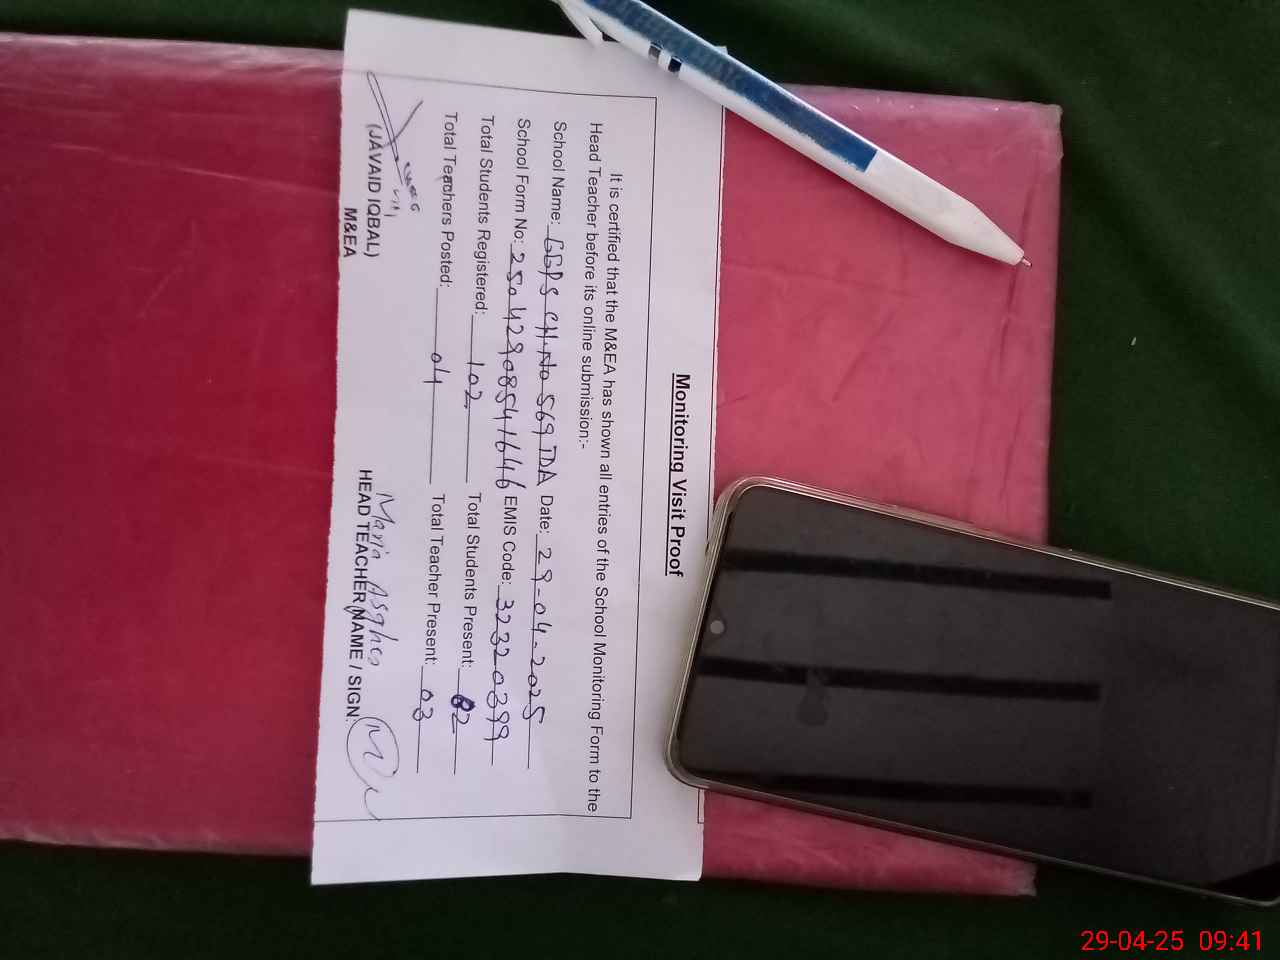 Monitoring Visit Proof
It is certified that the M&EA has shown all entries of the School Monitoring Form to the
Head Teacher before its online submission:-
School Name: GGPS CH.No 569 TDA Date: 29-04-2025
School Form No: 25042908541646 EMIS Code: 32320399
Total Students Registered: 102 Total Students Present: 82
Total Teachers Posted: 04 Total Teacher Present: 03
Maria Asghar
(JAVAID IQBAL) HEAD TEACHER (NAME / SIGN:
M&EA
29-04-25 09:41